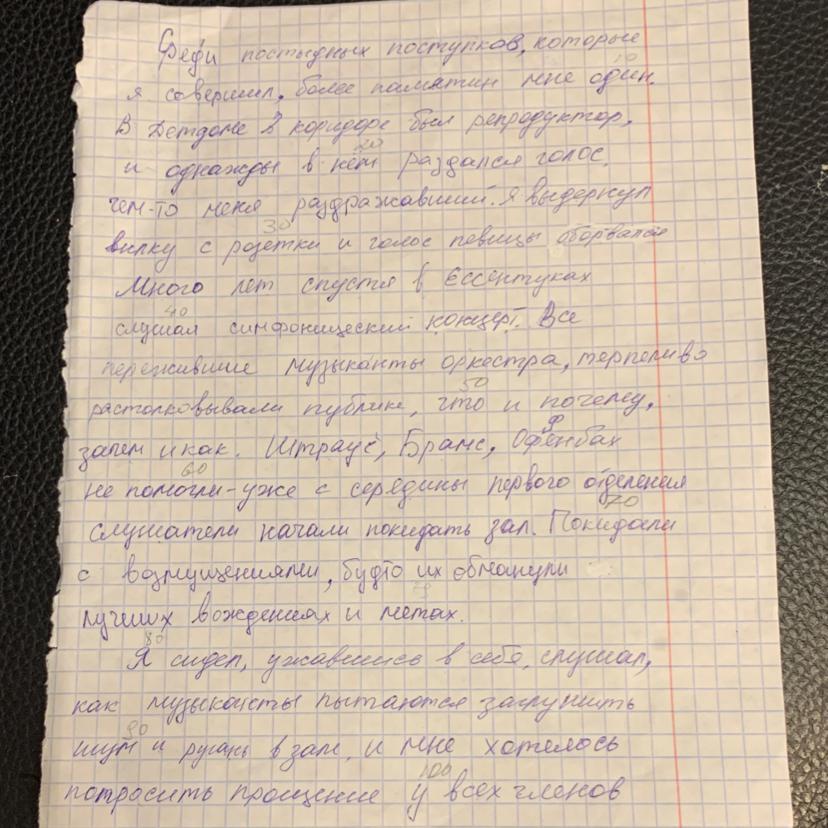 Среди постыдных поступков, которые
я совершил, более памятин мне один. 10
В Детдоме в коридоре был репродуктор,
и однажды в нём раздался голос, 20
чем-то меня раздражавший. Я выдернул
вилку с розетки и голос певицы оборвался 30
Много лет спустя в Ессентуках
слушал симфонический концерт. Все 40
пережившие музыканты оркестра, терпеливо
растолковывали публике, что и почему, 50
зачем и как. Штраус, Брамс, Офенбах ф
не помогли - уже с середины первого отделения 60
слушатели начали покидать зал. Покидали 70
с возмущениями, будто их обманули
лучших вождениях и метах.
Я сидел, ужавшись в себя, слушал, 80
как музыканты пытаются заглушить
шум и ругань в зале, и мне хотелось 90
потросить прощение у всех членов 100